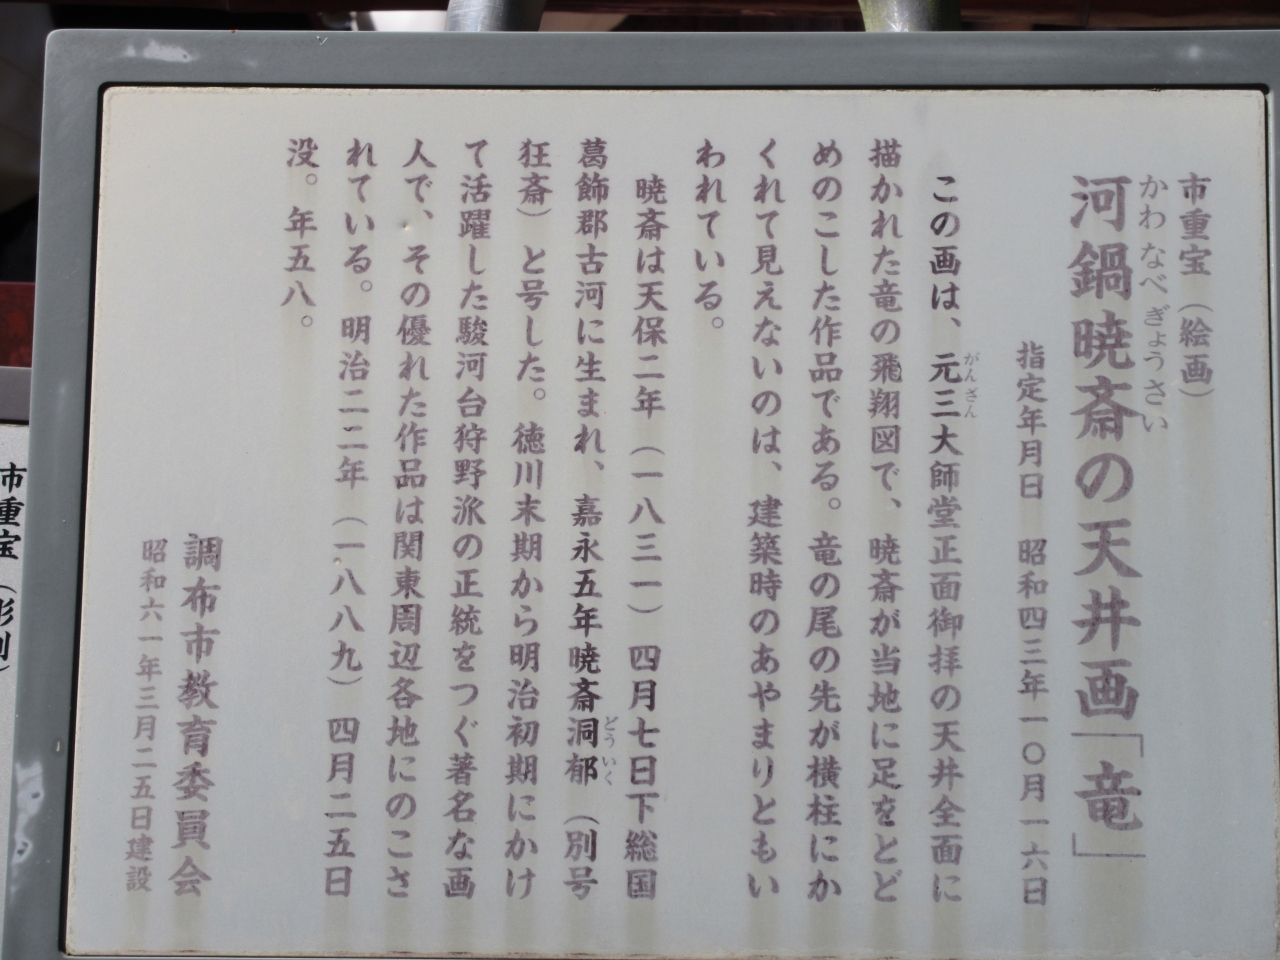 市重宝（絵画）
かわなべぎょうさい
河鍋暁斎の天井画「竜」
指定年月日　昭和四三年一〇月一六日
がんざん
この画は、元三大師堂正面御拝の天井全面に
描かれた竜の飛翔図で、暁斎が当地に足をとど
めのこした作品である。竜の尾の先が横柱にか
くれて見えないのは、建築時のあやまりともい
われている。
暁斎は天保二年（一八三一）四月七日下総国
どういく
葛飾郡古河に生まれ、嘉永五年暁斎洞郁（別号
狂斎）と号した。徳川末期から明治初期にかけ
て活躍した駿河台狩野派の正統をつぐ著名な画
人で、その優れた作品は関東周辺各地にのこさ
れている。明治二二年（一八八九）四月二五日
没。年五八。
調布市教育委員会
昭和六一年三月二五日建設
市重宝（彫刻）